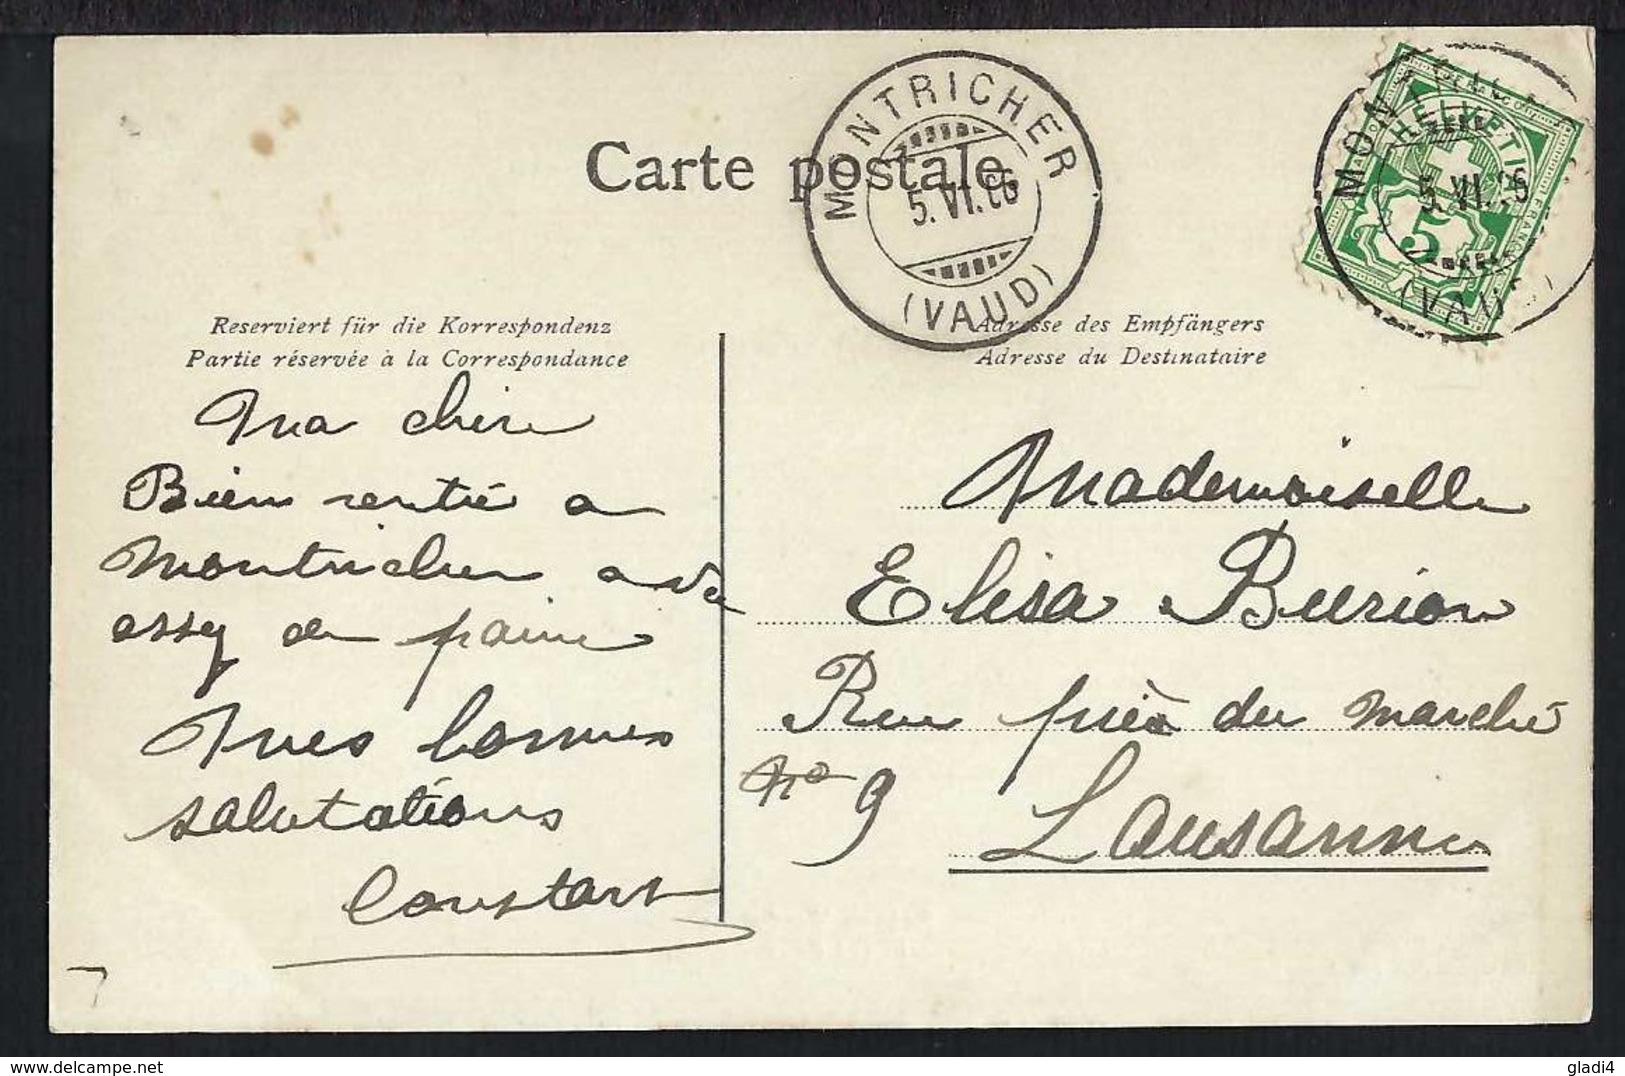 Carte postale.
MONTRICHER
5. VI. 06
(VAUD)
MONTRICHER
HELVETIA
FRANCO
5. VI. 06
5
(VAUD)
Reserviert für die Korrespondenz
Partie réservée à la Correspondance
Adresse des Empfängers
Adresse du Destinataire
Ma chère
Bien rentré a
Montricher
assez de paine
Mes bonnes
salutations
Constant
Mademoiselle
Elisa Burion
Rue près du marché
No 9
Lausanne
gladi4